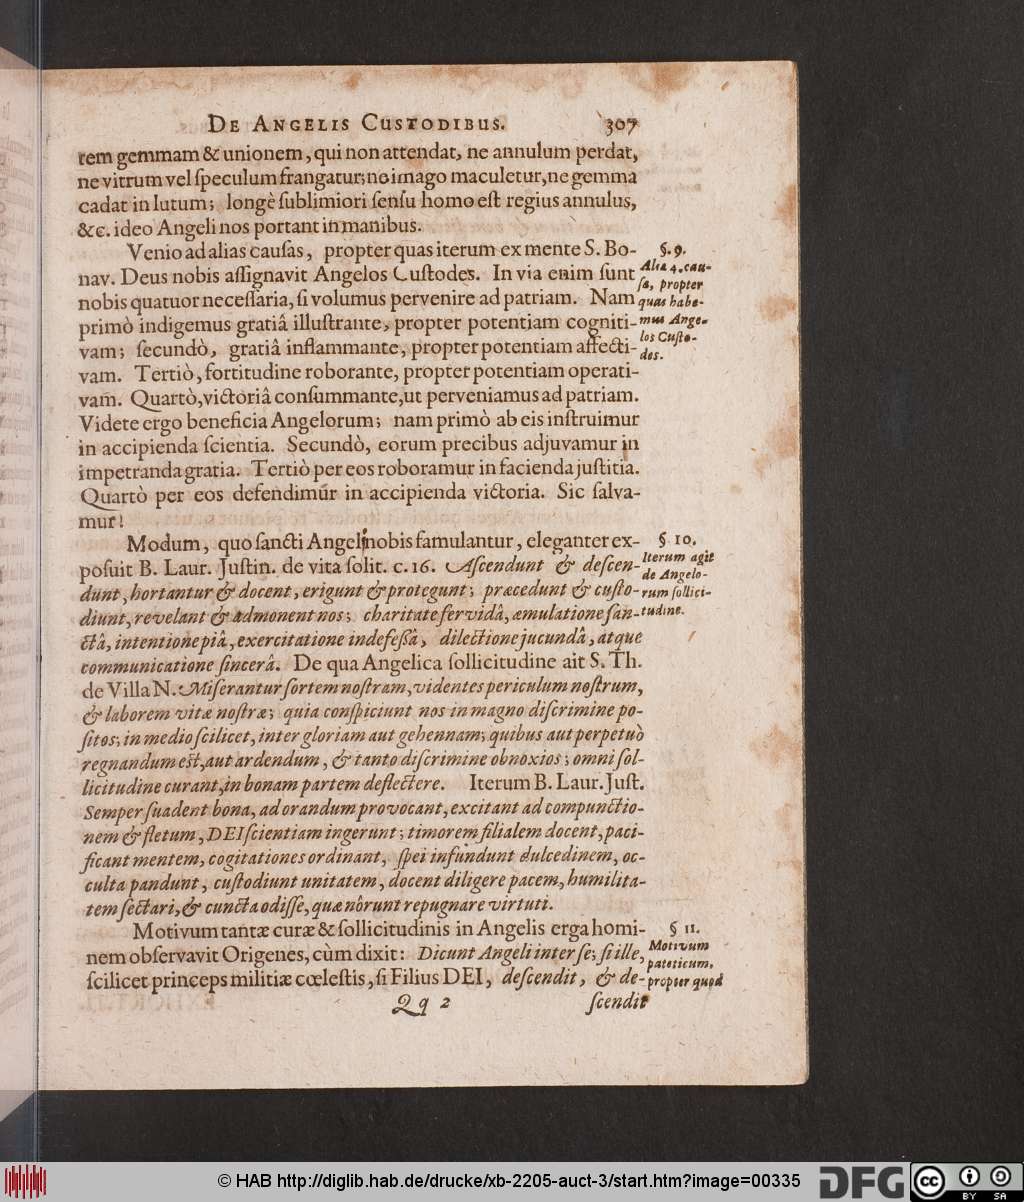 DE ANGELIS CUSTODIBUS. 307
rem gemmam & unionem, qui non attendat, ne annulum perdat,
ne vitrum vel ſpeculum frangatur; ne imago maculetur, ne gemma
cadat in lutum; longè ſublimiori ſenſu homo eſt regius annulus,
&c. ideo Angeli nos portant in manibus.
Venio ad alias cauſas, propter quas iterum ex mente S. Bo-
nav. Deus nobis aſſignavit Angelos Cuſtodes. In via enim ſunt
nobis quatuor neceſſaria, ſi volumus pervenire ad patriam. Nam
primò indigemus gratiâ illuſtrante, propter potentiam cogniti-
vam; ſecundò, gratiâ inflammante, propter potentiam affecti-
vam. Tertiò, fortitudine roborante, propter potentiam operati-
vam. Quartò, victoriâ conſummante, ut perveniamus ad patriam.
Videte ergo beneficia Angelorum; nam primò ab eis inſtruimur
in accipienda ſcientia. Secundò, eorum precibus adjuvamur in
impetranda gratia. Tertiò per eos roboramur in facienda juſtitia.
Quartò per eos defendimur in accipienda victoria. Sic ſalva-
mur!
§. 9.
Alia 4. cau-
ſa, propter
quas habe-
mus Ange-
los Cuſto-
des.
Modum, quo ſancti Angeli nobis famulantur, eleganter ex-
poſuit B. Laur. Juſtin. de vita ſolit. c. 16. Aſcendunt & deſcen-
dunt, hortantur & docent, erigunt & protegunt; præcedunt & cuſto-
diunt, revelant & admonent nos; charitate fervidâ, æmulatione ſan-
ctâ, intentione piâ, exercitatione indefeſſâ, dilectione jucundâ, atque
communicatione ſincerâ. De qua Angelica ſollicitudine ait S. Th.
de Villa N. Miſerantur ſortem noſtram, videntes periculum noſtrum,
& laborem vitæ noſtræ; quia conſpiciunt nos in magno diſcrimine po-
ſitos; in medio ſcilicet, inter gloriam aut gehennam; quibus aut perpetuò
regnandum eſt, aut ardendum, & tanto diſcrimine obnoxios; omni ſol-
licitudine curant, in bonam partem deflectere. Iterum B. Laur. Juſt.
Semper ſuadent bona, ad orandum provocant, excitant ad compunctio-
nem & fletum, DEI ſcientiam ingerunt; timorem filialem docent, paci-
ficant mentem, cogitationes ordinant, ſpei infundunt dulcedinem, oc-
culta pandunt, cuſtodiunt unitatem, docent diligere pacem, humilita-
tem ſectari, & cuncta odiſſe, quæ nôrunt repugnare virtuti.
§ 10.
Iterum agit
de Angelo-
rum ſollici-
tudine.
Motivum tantæ curæ & ſollicitudinis in Angelis erga homi-
nem obſervavit Origenes, cùm dixit: Dicunt Angeli inter ſe; ſi ille,
ſcilicet princeps militiæ cœleſtis, ſi Filius DEI, deſcendit, & de-
§ 11.
Motivum
pateticum,
propter quod
Qq 2 ſcendit
© HAB http://diglib.hab.de/drucke/xb-2205-auct-3/start.htm?image=00335
DFG
cc BY SA